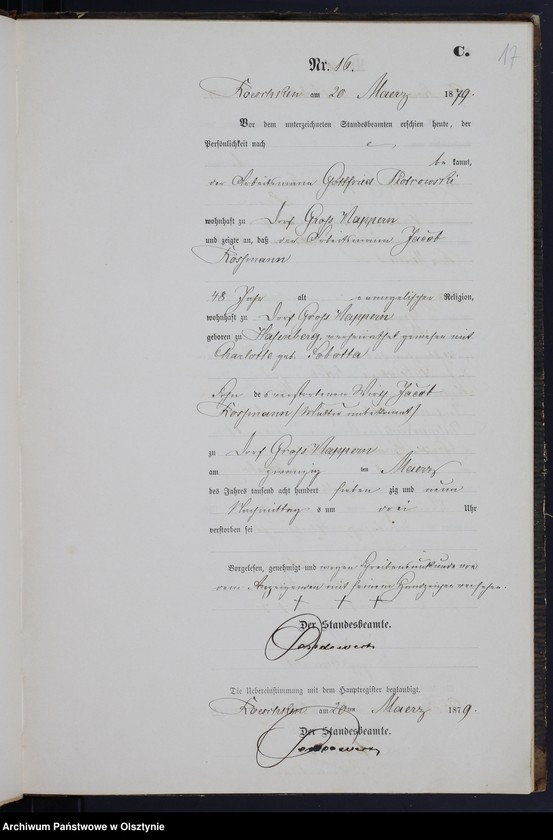 C.
17
Nr. 16.
am 20 Maerz 1879.
Vor dem unterzeichneten Standesbeamten erschien heute, der
Persönlichkeit nach
be kannt,
der Arbeitsmann Gottfried Piotrowski
wohnhaft zu Dorf Groß Nappern
und zeigte an, daß der Arbeitsmann Jacob
Roßmann
48 Jahr alt evangelischer Religion,
wohnhaft zu Dorf Groß Nappern
geboren zu Hasenberg, verheirathet gewesen mit
Charlotte geb. Sobotta
Sohn des verstorbenen Wirth Jacob
Roßmann (Mutter unbekannt)
zu Dorf Groß Nappern
am zwanzig ten Maerz
des Jahres tausend acht hundert sieben zig und neun
Nachmittag s um drei Uhr
verstorben sei
Vorgelesen, genehmigt und wegen Schreibensunkunde von
dem Anzeigenden mit seinem Handzeichen versehen.
+ + +
Der Standesbeamte.
Die Uebereinstimmung mit dem Hauptregister beglaubigt.
am 20ten Maerz 1879.
Der Standesbeamte.
Archiwum Państwowe w Olsztynie